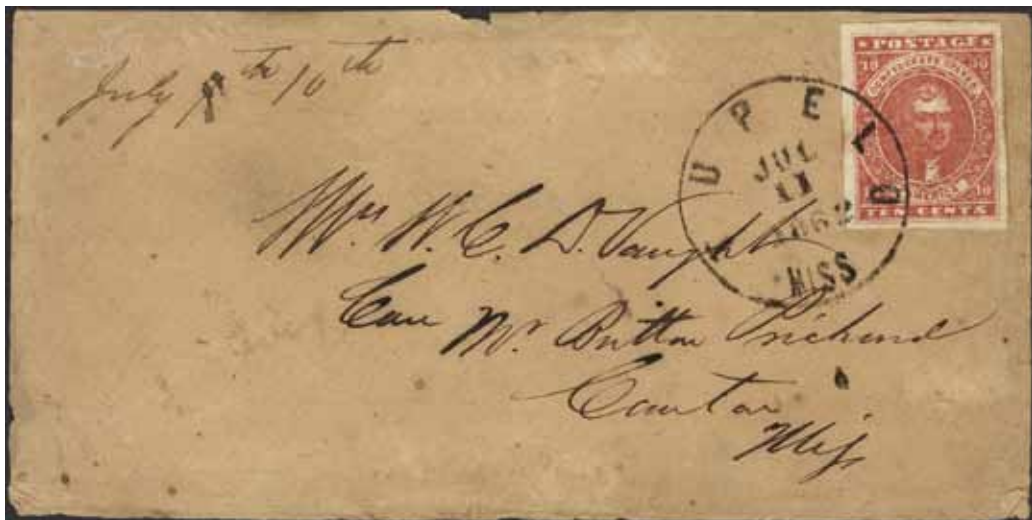 July 10th
POSTAGE
10 10
CONFEDERATE STATES
10 10
TEN CENTS
UPELO
JUL
11
1862
MISS
Mrs W. C. D. Vaught
Care Mr. Britton Prichard
Canton
Miss